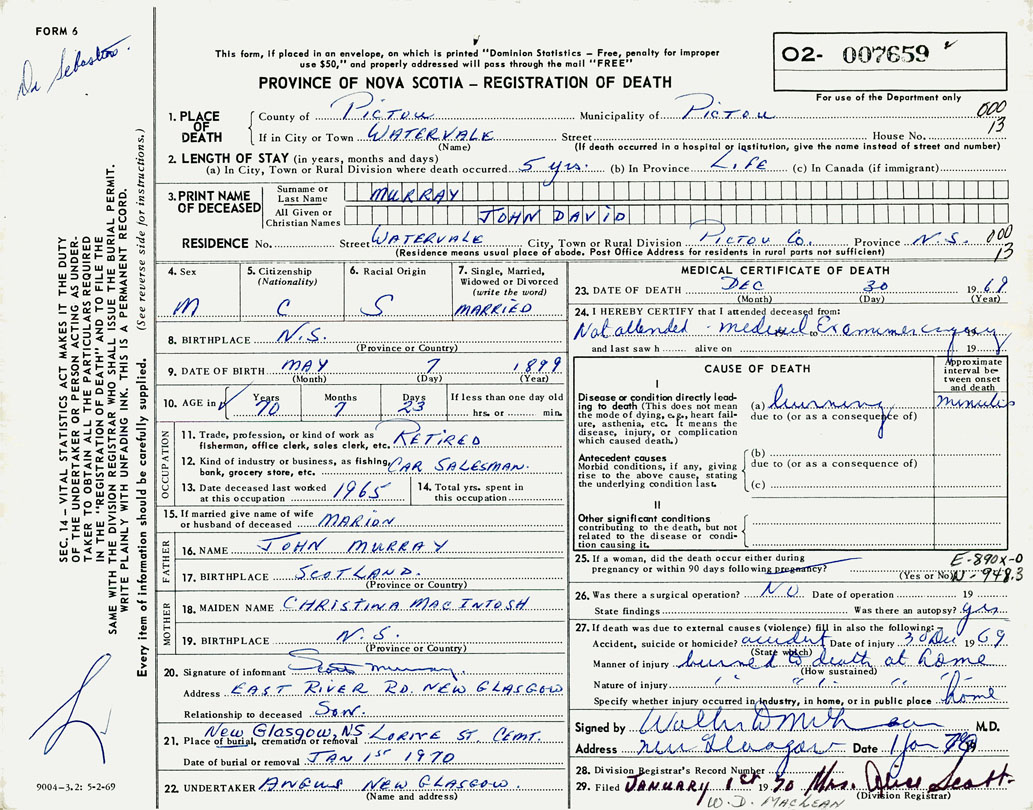 FORM 6
Dr Sebastian.
This form, if placed in an envelope, on which is printed "Dominion Statistics – Free, penalty for improper
use $50," and properly addressed will pass through the mail "FREE"
PROVINCE OF NOVA SCOTIA – REGISTRATION OF DEATH
O2- 007659
For use of the Department only
1. PLACE OF DEATH
County of PICTOU Municipality of PICTOU 000
13
If in City or Town WATERVALE Street House No.
(Name) (If death occurred in a hospital or institution, give the name instead of street and number)
2. LENGTH OF STAY (in years, months and days)
(a) In City, Town or Rural Division where death occurred 5 yrs. (b) In Province LIFE (c) In Canada (if immigrant)
3. PRINT NAME OF DECEASED
Surname or Last Name MURRAY
All Given or Christian Names JOHN DAVID
RESIDENCE No. Street WATERVALE City, Town or Rural Division PICTOU CO. Province N.S. 000
13
(Residence means usual place of abode. Post Office Address for residents in rural parts not sufficient)
4. Sex M
5. Citizenship (Nationality) C
6. Racial Origin S
7. Single, Married, Widowed or Divorced (write the word) MARRIED
8. BIRTHPLACE N.S.
(Province or Country)
9. DATE OF BIRTH MAY 7 1899
(Month) (Day) (Year)
10. AGE in Years 70 Months 7 Days 23 If less than one day old
hrs. or min.
OCCUPATION
11. Trade, profession, or kind of work as
fisherman, office clerk, sales clerk, etc. RETIRED
12. Kind of industry or business, as fishing,
bank, grocery store, etc. CAR SALESMAN.
13. Date deceased last worked
at this occupation 1965
14. Total yrs. spent in
this occupation
15. If married give name of wife
or husband of deceased MARION
FATHER
16. NAME JOHN MURRAY
17. BIRTHPLACE SCOTLAND.
(Province or Country)
MOTHER
18. MAIDEN NAME CHRISTINA MAC INTOSH
19. BIRTHPLACE N.S.
(Province or Country)
20. Signature of informant Scott Murray.
Address EAST RIVER RD. NEW GLASGOW
Relationship to deceased SON.
21. Place of burial, cremation or removal New Glasgow, NS LORNE ST CEMT.
Date of burial or removal JAN 1ST 1970
22. UNDERTAKER ANGUS NEW GLASGOW.
(Name and address)
MEDICAL CERTIFICATE OF DEATH
23. DATE OF DEATH DEC 30 1969
(Month) (Day) (Year)
24. I HEREBY CERTIFY that I attended deceased from:
Not attended - medical Examiner 19
and last saw h alive on 19
CAUSE OF DEATH
Approximate interval between onset and death
I
Disease or condition directly leading to death (This does not mean the mode of dying, e.g., heart failure, asthenia, etc. It means the disease, injury, or complication which caused death.)
(a) burning minutes
due to (or as a consequence of)
Antecedent causes
Morbid conditions, if any, giving rise to the above cause, stating the underlying condition last.
(b)
due to (or as a consequence of)
(c)
II
Other significant conditions
contributing to the death, but not related to the disease or condition causing it.
25. If a woman, did the death occur either during
pregnancy or within 90 days following pregnancy?
(Yes or No)
E-890X-0
N-948.3
26. Was there a surgical operation? NO Date of operation 19
State findings Was there an autopsy? yes
27. If death was due to external causes (violence) fill in also the following:
Accident, suicide or homicide? accident Date of injury 30 Dec 1969
(State which)
Manner of injury burned to death at home
(How sustained)
Nature of injury " " " " "
Specify whether injury occurred in industry, in home, or in public place home
Signed by M.D.
Address New Glasgow Date 1 Jan 70
28. Division Registrar's Record Number
29. Filed JANUARY 1st 1970 Mrs. Alice Scott
(Division Registrar)
W. D. MACLEAN
SEC. 14 – VITAL STATISTICS ACT MAKES IT THE DUTY
OF THE UNDERTAKER OR PERSON ACTING AS UNDER-
TAKER TO OBTAIN ALL THE PARTICULARS REQUIRED
IN THE "REGISTRATION OF DEATH" AND TO FILE THE
SAME WITH THE DIVISION REGISTRAR WHO SHALL ISSUE THE BURIAL PERMIT.
WRITE PLAINLY WITH UNFADING INK. THIS IS A PERMANENT RECORD.
Every item of information should be carefully supplied. (See reverse side for instructions.)
9004-3.2: 5-2-69